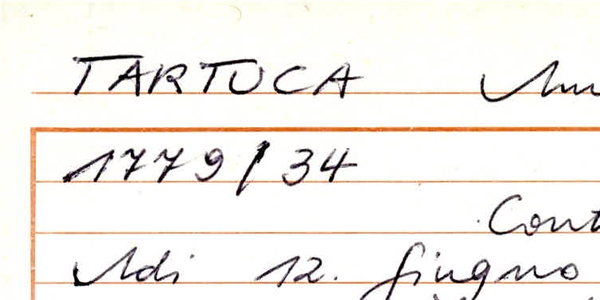 TARTUCA
1779/34
Cont
Adi 12. Giugno